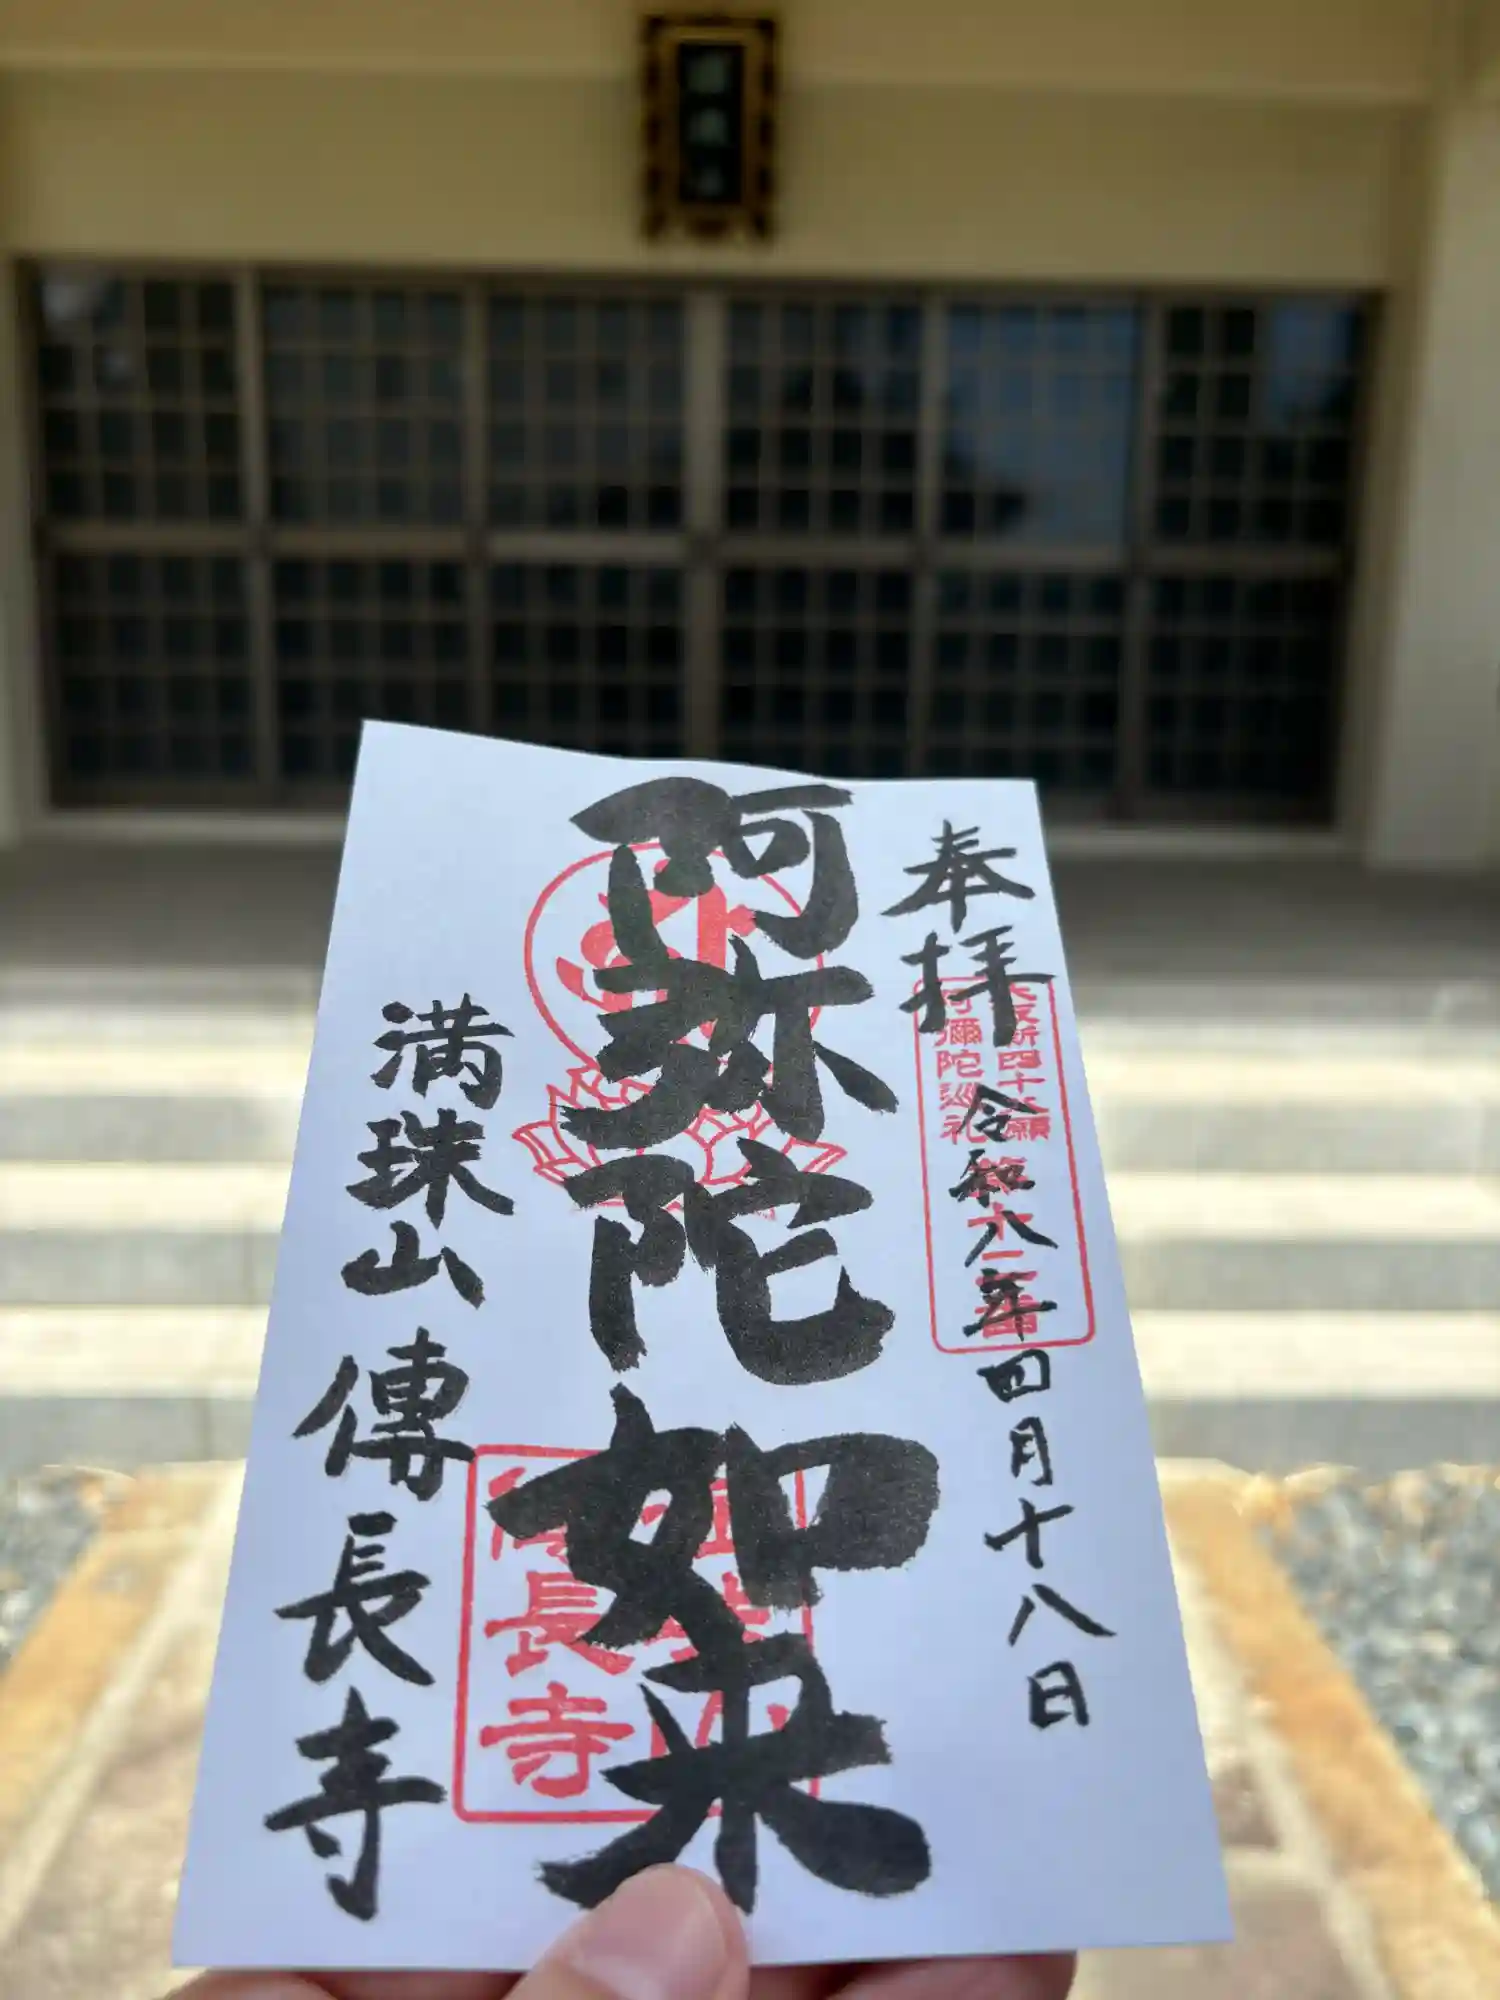 奉拝
令和八年四月十八日
大阪新四十八願
阿彌陀巡礼
阿弥陀如来
満珠山
傳長寺
長寺